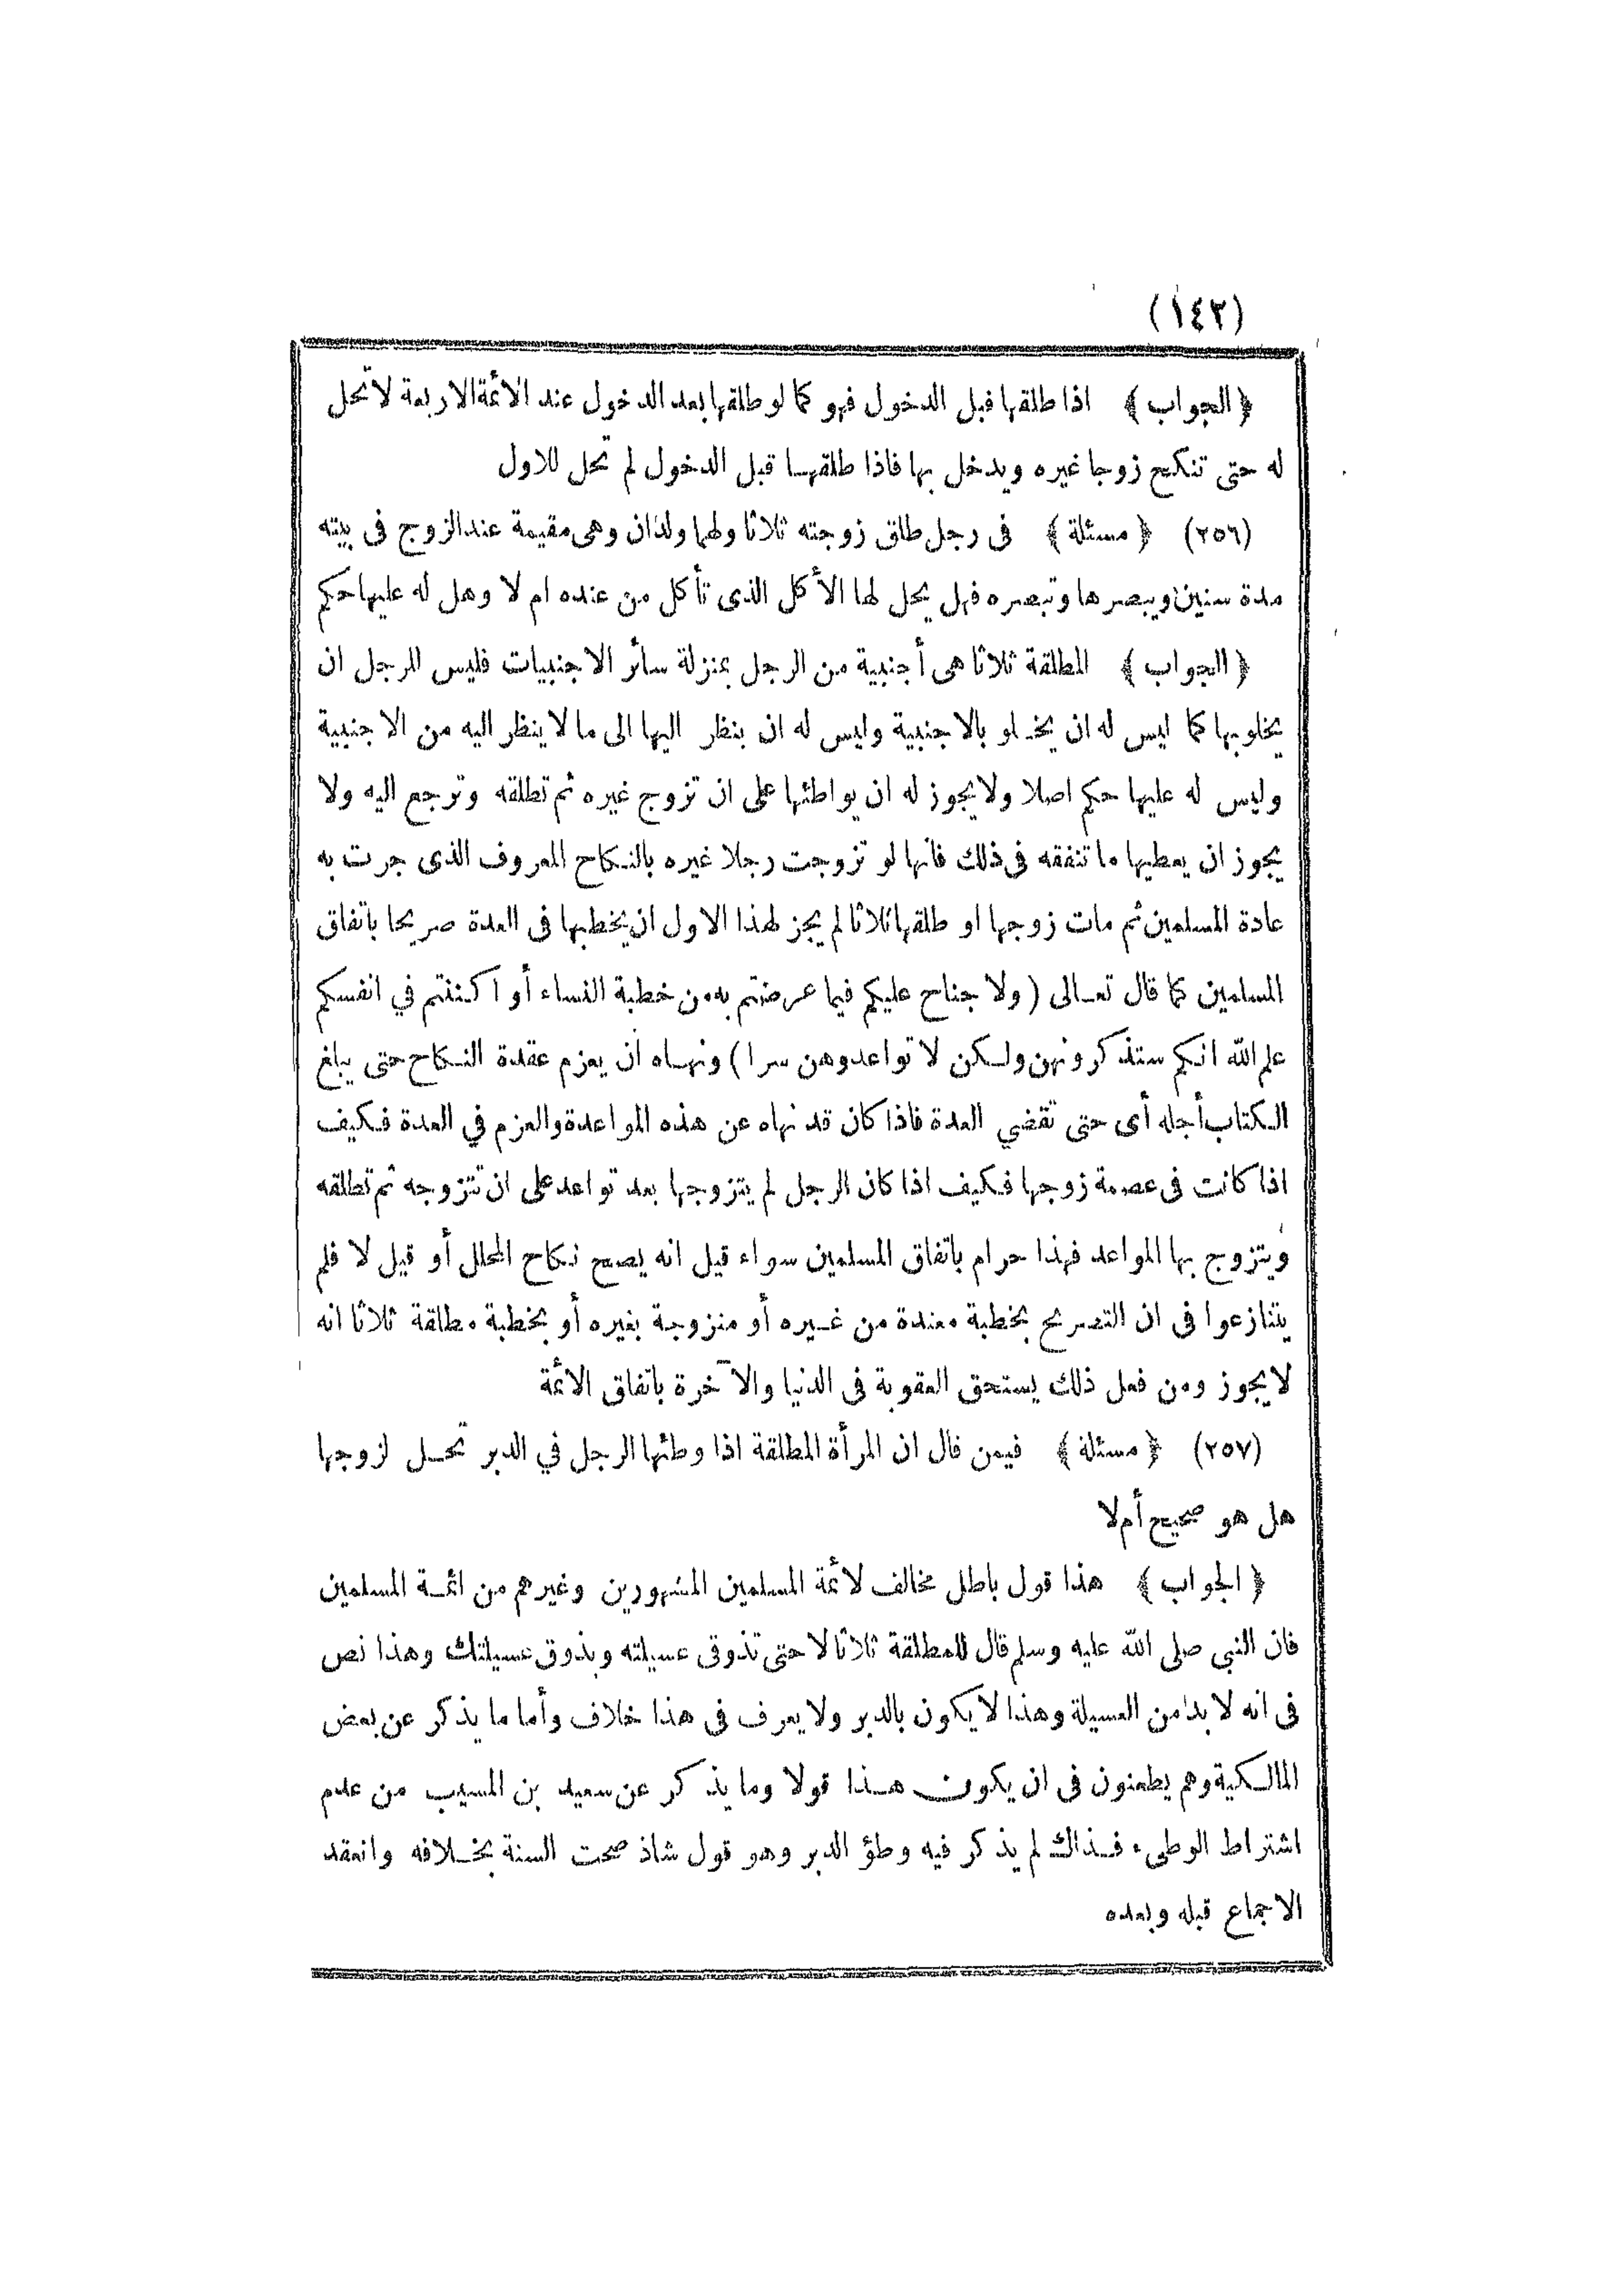 (١٤٢)
﴿ الجواب ﴾ اذا طلقها قبل الدخول فهو كما لو طلقها بعد الدخول عند الائمة الاربعة لا تحل
له حتى تنكح زوجا غيره ويدخل بها فاذا طلقها قبل الدخول لم تحل للاول
(٢٥٦) ﴿ مسئلة ﴾ فى رجل طلق زوجته ثلاثا ولهما ولدان وهى مقيمة عند الزوج فى بيته
مدة سنين ويبصرها وتبصره فهل يحل لها الأكل الذى تأكل من عنده ام لا وهل له عليها حكم
﴿ الجواب ﴾ المطلقة ثلاثا هى أجنبية من الرجل بمنزلة سائر الاجنبيات فليس للرجل ان
يخلو بها كما ليس له ان يخلو بالاجنبية وليس له ان ينظر اليها الى ما لا ينظر اليه من الاجنبية
وليس له عليها حكم اصلا ولا يجوز له ان يواطئها على ان تزوج غيره ثم تطلقه وترجع اليه ولا
يجوز ان يعطيها ما تنفقه فى ذلك فانها لو تزوجت رجلا غيره بالنكاح المعروف الذى جرت به
عادة المسلمين ثم مات زوجها او طلقها ثلاثا لم يجز لهذا الاول ان يخطبها فى العدة صريحا باتفاق
المسلمين كما قال تعالى (ولا جناح عليكم فيما عرضتم به من خطبة النساء أو اكننتم في انفسكم
علم الله انكم ستذكرونهن ولكن لا تواعدوهن سرا) ونهاه ان يعزم عقدة النكاح حتى يبلغ
الكتاب أجله أى حتى تقضي العدة فاذا كان قد نهاه عن هذه المواعدة والعزم في العدة فكيف
اذا كانت فى عصمة زوجها فكيف اذا كان الرجل لم يتزوجها بعد تواعد على ان تتزوجه ثم تطلقه
ويتزوج بها المواعد فهذا حرام باتفاق المسلمين سواء قيل انه يصح نكاح المحلل أو قيل لا فلم
يتنازعوا فى ان التصريح بخطبة معتدة من غيره أو متزوجة بغيره أو بخطبة مطلقة ثلاثا انه
لا يجوز ومن فعل ذلك يستحق العقوبة فى الدنيا والآخرة باتفاق الائمة
(٢٥٧) ﴿ مسئلة ﴾ فيمن قال ان المرأة المطلقة اذا وطئها الرجل في الدبر تحل لزوجها
هل هو صحيح أم لا
﴿ الجواب ﴾ هذا قول باطل مخالف لائمة المسلمين المشهورين وغيرهم من ائمة المسلمين
فان النبي صلى الله عليه وسلم قال للمطلقة ثلاثا لا حتى تذوقى عسيلته ويذوق عسيلتك وهذا نص
فى انه لا بد من العسيلة وهذا لا يكون بالدبر ولا يعرف فى هذا خلاف وأما ما يذكر عن بعض
المالكية وهم يطعنون فى ان يكون هذا قولا وما يذكر عن سعيد بن المسيب من عدم
اشتراط الوطىء فذاك لم يذكر فيه وطؤ الدبر وهو قول شاذ صحت السنة بخلافه وانعقد
الاجماع قبله وبعده